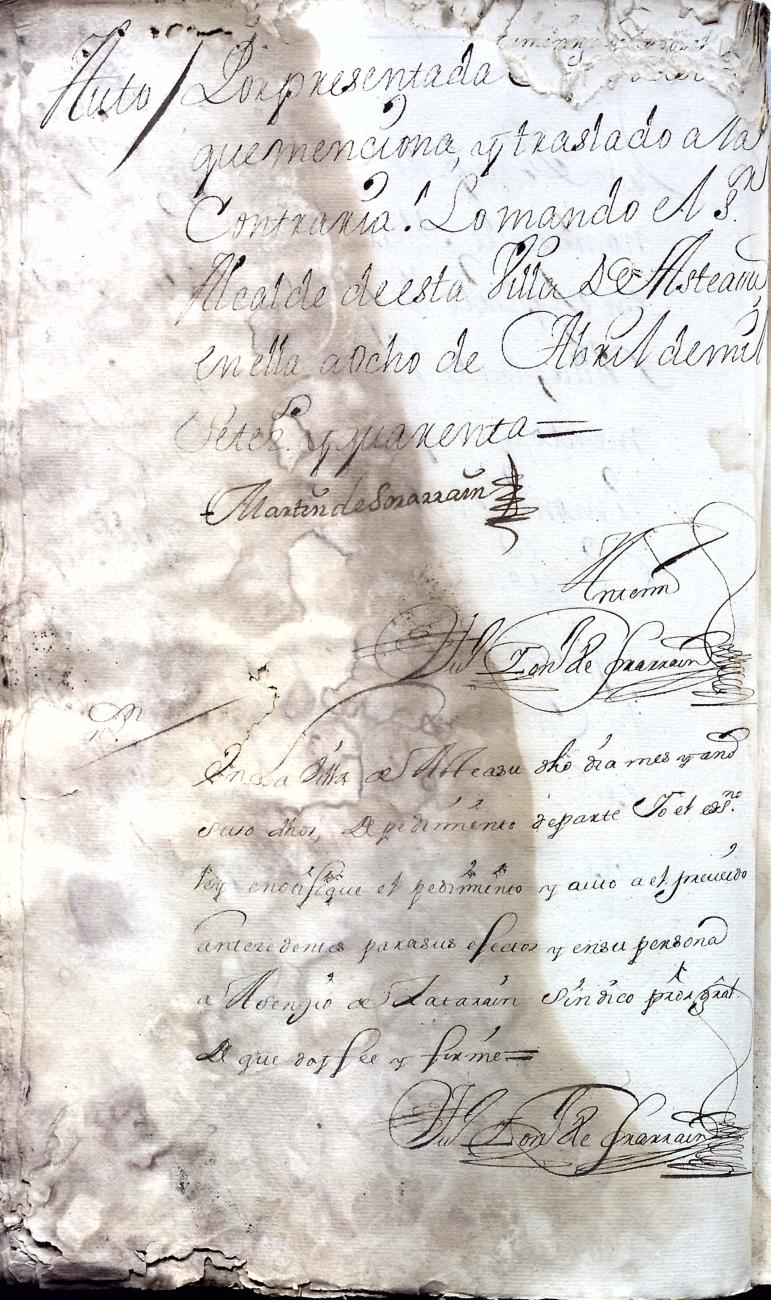 Auto / Por presentada
que menciona, y traslado a la
Contraria. Lo mando el S.r
Alcalde de esta Villa De Asteasu
en ella a ocho de Abril de mil
Setez. y quarenta =
Martin de Sorarrain
Antemi
de Ynarrain
En La Villa de Asteasu dho dia mes y año
suso dhos, De pedimiento de parte Yo el ess.no
ley e notifique el pedimiento y auto a el preveido
antezedentes para sus efectos y en su persona
a Asenjio de Zatarain Sindico pror gral
De que doy fee y firme =
de Ynarrain